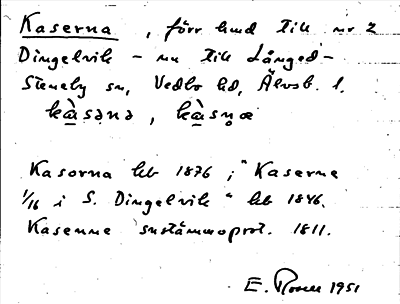 Kaserna, förr hmd till nr 2
Dingelvik – nu till Långed –
Steneby sn, Vedbo hd, Älvsb. l.
kàsəna, kàsn̥æ
Kasorna hb 1876; "Kaserne
1/16 i S. Dingelvik" hb 1846.
Kasenne snstämmoprot. 1811.
E. Rosen 1951